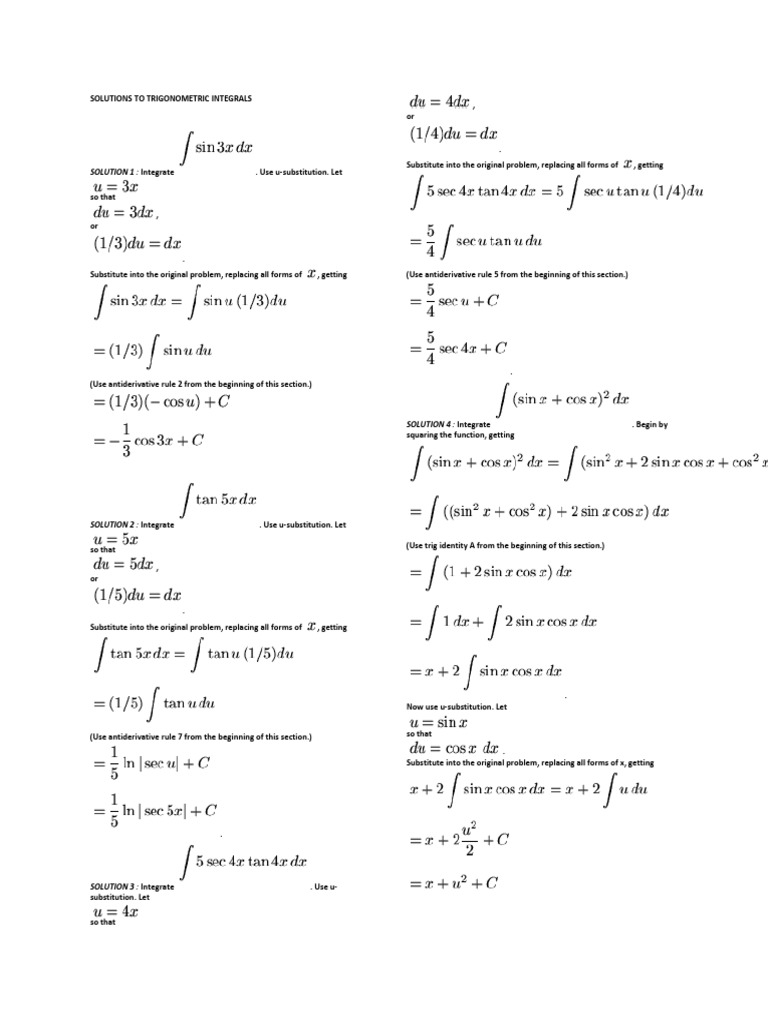 SOLUTIONS TO TRIGONOMETRIC INTEGRALS
∫ sin 3x dx
SOLUTION 1 : Integrate . Use u-substitution. Let
u = 3x
so that
du = 3dx ,
or
(1/3)du = dx
.
Substitute into the original problem, replacing all forms of x , getting
∫ sin 3x dx = ∫ sin u (1/3)du
= (1/3) ∫ sin u du
(Use antiderivative rule 2 from the beginning of this section.)
= (1/3)(− cos u) + C
= −1/3 cos 3x + C
∫ tan 5x dx
SOLUTION 2 : Integrate . Use u-substitution. Let
u = 5x
so that
du = 5dx ,
or
(1/5)du = dx
.
Substitute into the original problem, replacing all forms of x , getting
∫ tan 5x dx = ∫ tan u (1/5)du
= (1/5) ∫ tan u du
(Use antiderivative rule 7 from the beginning of this section.)
= 1/5 ln | sec u| + C
= 1/5 ln | sec 5x| + C
.
∫ 5 sec 4x tan 4x dx
SOLUTION 3 : Integrate . Use u-
substitution. Let
u = 4x
so that
du = 4dx ,
or
(1/4)du = dx
.
Substitute into the original problem, replacing all forms of x , getting
∫ 5 sec 4x tan 4x dx = 5 ∫ sec u tan u (1/4)du
= 5/4 ∫ sec u tan u du
(Use antiderivative rule 5 from the beginning of this section.)
= 5/4 sec u + C
= 5/4 sec 4x + C
.
∫ (sin x + cos x)² dx
SOLUTION 4 : Integrate . Begin by
squaring the function, getting
∫ (sin x + cos x)² dx = ∫ (sin² x + 2 sin x cos x + cos² x
= ∫ ((sin² x + cos² x) + 2 sin x cos x) dx
(Use trig identity A from the beginning of this section.)
= ∫ (1 + 2 sin x cos x) dx
= ∫ 1 dx + ∫ 2 sin x cos x dx
= x + 2 ∫ sin x cos x dx
.
Now use u-substitution. Let
u = sin x
so that
du = cos x dx .
Substitute into the original problem, replacing all forms of x, getting
x + 2 ∫ sin x cos x dx = x + 2 ∫ u du
= x + 2 u²/2 + C
= x + u² + C